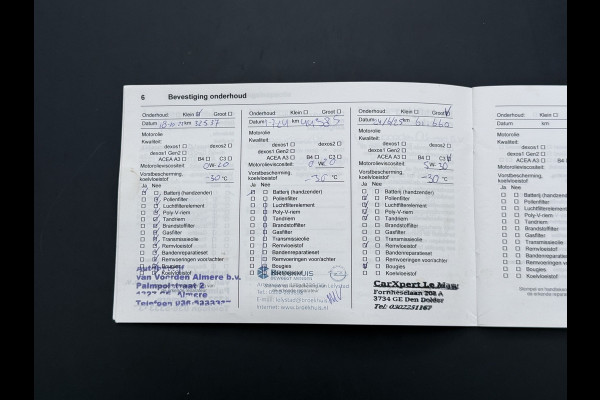 6 Bevestiging onderhoud
Onderhoud: Klein Groot
Datum km 32517
Motorolie
Kwaliteit:
dexos1 dexos2
dexos1 Gen2
ACEA A3 B4 C3
Motorolieviscositeit: 0W20
Vorstbescherming,
koelvloeistof -30 °C
Ja Nee
Batterij (handzender)
Pollenfilter
Luchtfilterelement
Poly-V-riem
Tandriem
Brandstoffilter
Gasfilter
Transmissieolie
Remvloeistof
Bandenreparatieset
Remvoeringen voor/achter
Bougies
Koelvloeistof
Van Voorden Almere b.v.
Palmpolstraat 2
Almere
Telefoon 036-
Onderhoud: Klein Groot
Datum km
Motorolie
Kwaliteit:
dexos1 dexos2
dexos1 Gen2
ACEA A3 B4 C3
Motorolieviscositeit: 0W20
Vorstbescherming,
koelvloeistof -30 °C
Ja Nee
Batterij (handzender)
Pollenfilter
Luchtfilterelement
Poly-V-riem
Tandriem
Brandstoffilter
Gasfilter
Transmissieolie
Remvloeistof
Bandenreparatieset
Remvoeringen voor/achter
Bougies
BROEKHUIS
Lelystad
Internet: www.broekhuis.nl
Onderhoud: Klein Groot
Datum: 24/6/25 km 61.660
Motorolie
Kwaliteit:
dexos1 dexos2
dexos1 Gen2
ACEA A3 B4 C3
Motorolieviscositeit: 5W30
Vorstbescherming,
koelvloeistof -30 °C
Ja Nee
Batterij (handzender)
Pollenfilter
Luchtfilterelement
Poly-V-riem
Tandriem
Brandstoffilter
Gasfilter
Transmissieolie
Remvloeistof
Bandenreparatieset
Remvoeringen voor/achter
Bougies
Koelvloeistof
CarXpert Le Mans
Fornheselaan 202 A
3734 GE Den Dolder
Tel: 0302251167
Onderhoud: Klein
Datum: km
Motorolie
Kwaliteit:
dexos1
dexos1 Gen2
ACEA A3 B4
Motorolieviscositeit:
Vorstbescherming,
koelvloeistof
Ja Nee
Batterij (handzender)
Pollenfilter
Luchtfilterelement
Poly-V-riem
Tandriem
Brandstoffilter
Gasfilter
Transmissieolie
Remvloeistof
Bandenreparatieset
Remvoeringen voor/achter
Bougies
Koelvloeistof